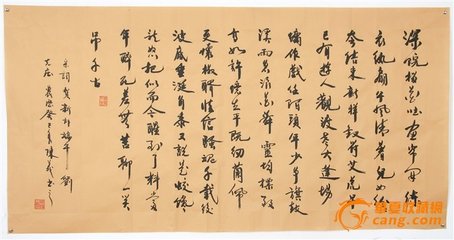 深院榴花吐画帘开綀
衣纨扇午风清暑儿女纷
纷夸结束新样钗符艾虎早
已有游人观渡老大逢场
慵作戏任陌头年少争旗鼓
溪雨急浪花舞灵均标致
高如许忆生平既纫兰佩
更怀椒醑谁信骚魂千载后
波底垂涎角黍又说是蛟馋
龙怒把似而今醒到了料当
年醉死差无苦聊一笑
吊千古
宋词贺新郎端午刘
克庄
华夏收藏网